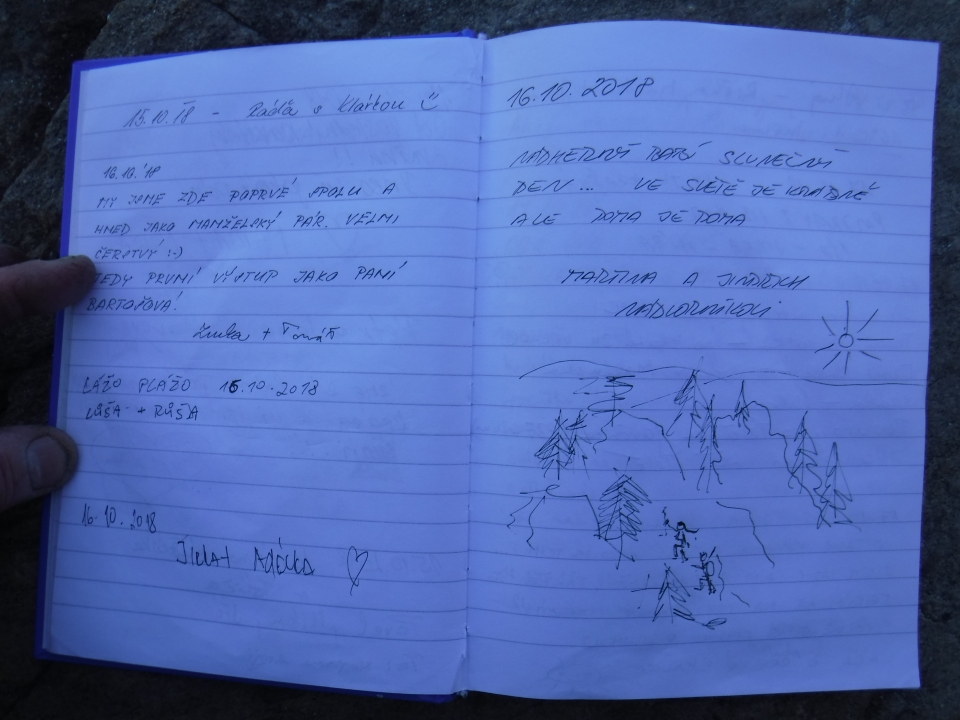 15.10.18 - Ráďa s Klárkou
16.10.'18
MY JSME ZDE POPRVÉ SPOLU A
HNED JAKO MANŽELSKÝ PÁR. VELMI
ČERSTVÝ :-)
TEDY PRVNÍ VÝSTUP JAKO PANÍ
BARTOŠOVÁ!
+ Tomáš
LÁŽO PLÁŽO 16.10.2018
+ RŮŠA
16.10.2018
16.10.2018
SLUNEČNÝ
DEN... VE SVĚTĚ JE KRÁSNĚ
ALE DOMA JE DOMA
MARTINA A JINDŘICH